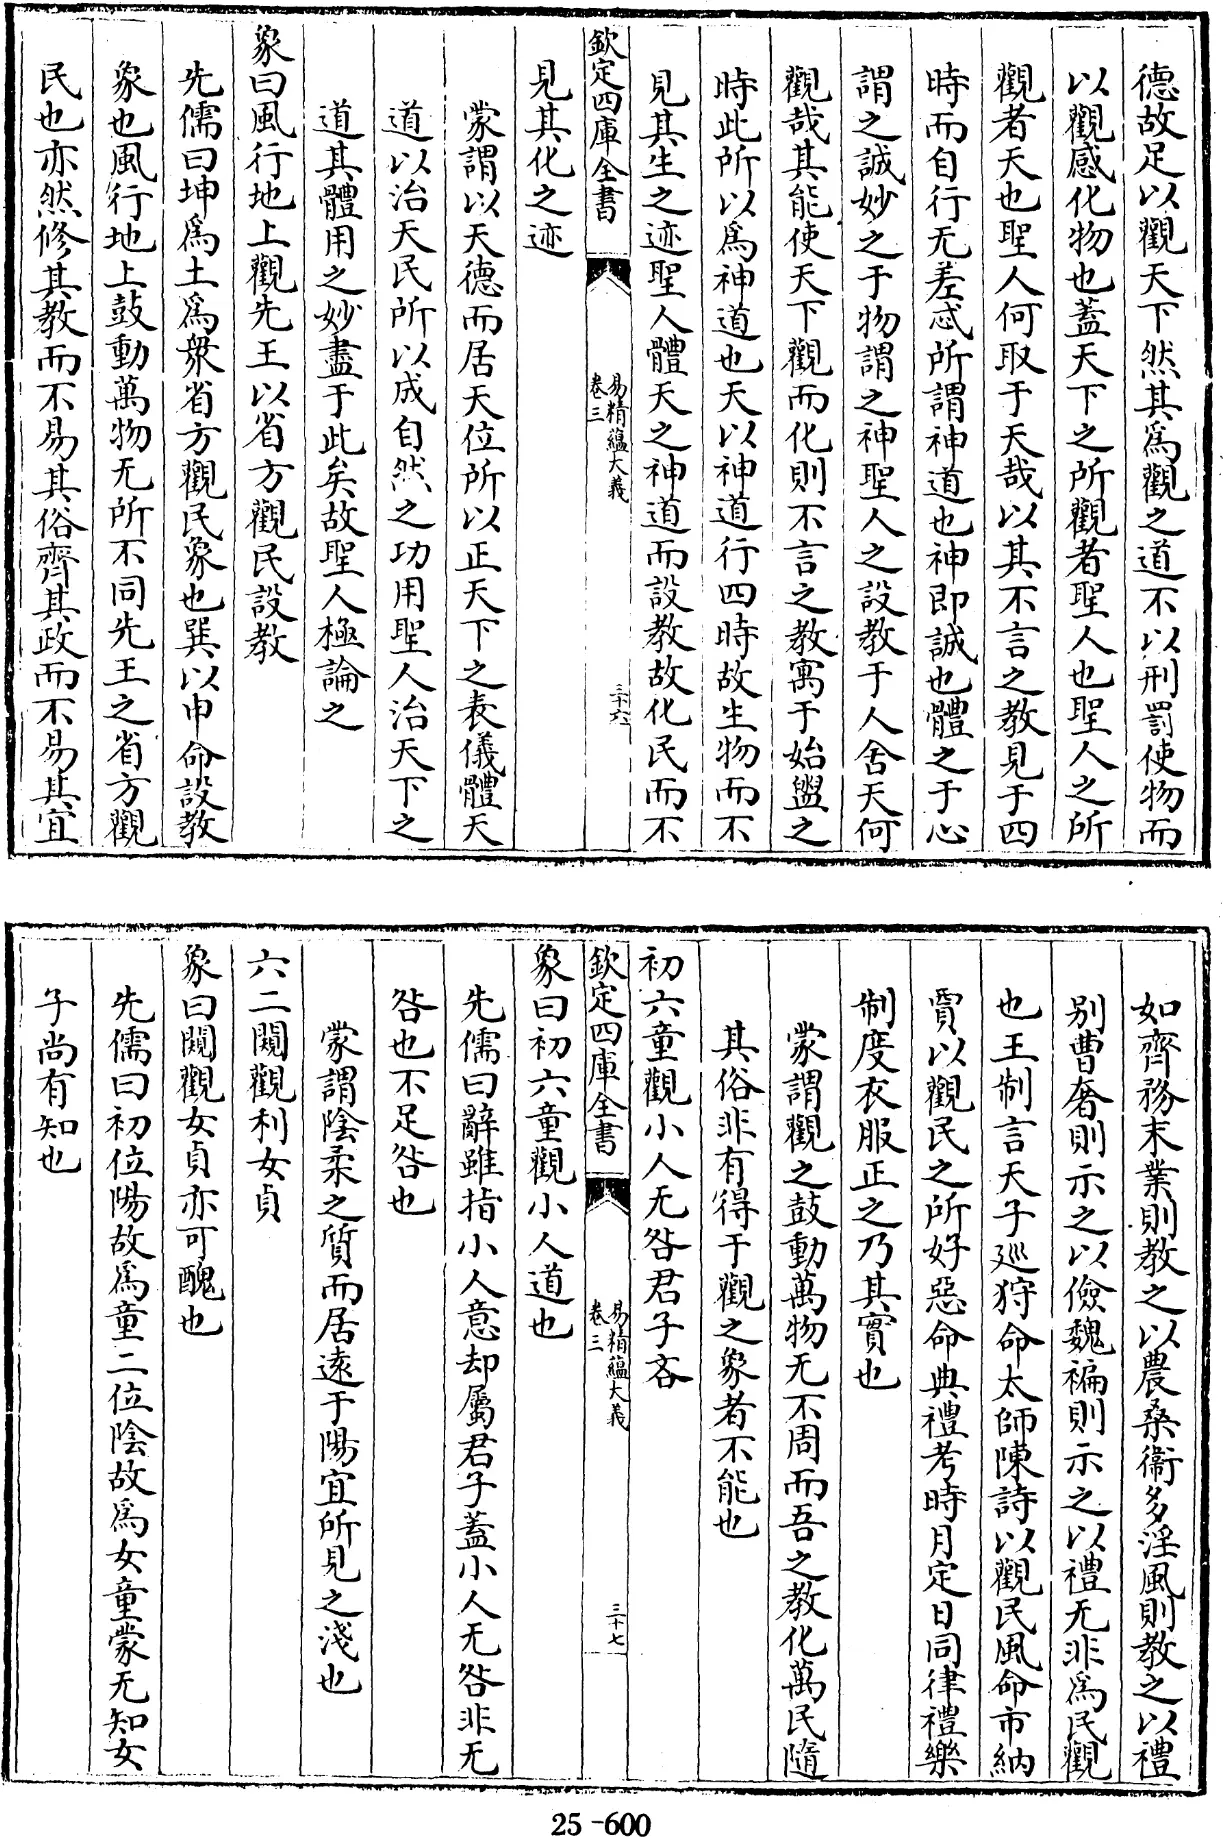 德故足以觀天下然其爲觀之道不以刑罰使物而
以觀感化物也蓋天下之所觀者聖人也聖人之所
觀者天也聖人何取于天哉以其不言之教見于四
時而自行无差忒所謂神道也神即誠也體之于心
謂之誠妙之于物謂之神聖人之設教于人舍天何
觀哉其能使天下觀而化則不言之教寓于始盥之
時此所以爲神道也天以神道行四時故生物而不
見其生之迹聖人體天之神道而設教故化民而不
欽定四庫全書
易精蘊大義
卷三
三十六
見其化之迹
蒙謂以天德而居天位所以正天下之表儀體天
道以治天民所以成自然之功用聖人治天下之
道其體用之妙盡于此矣故聖人極論之
象曰風行地上觀先王以省方觀民設教
先儒曰坤爲土爲衆省方觀民象也巽以申命設教
象也風行地上鼓動萬物无所不同先王之省方觀
民也亦然修其教而不易其俗齊其政而不易其宜
如齊務末業則教之以農桑衞多淫風則教之以禮
别曹奢則示之以儉魏褊則示之以禮无非爲民觀
也王制言天子廵狩命太師陳詩以觀民風命市納
賈以觀民之所好惡命典禮考時月定日同律禮樂
制度衣服正之乃其實也
蒙謂觀之鼓動萬物无不周而吾之教化萬民隨
其俗非有得于觀之象者不能也
初六童觀小人无咎君子吝
欽定四庫全書
易精蘊大義
卷三
三十七
象曰初六童觀小人道也
先儒曰辭雖指小人意却屬君子蓋小人无咎非无
咎也不足咎也
蒙謂陰柔之質而居遠于陽宜所見之淺也
六二闚觀利女貞
象曰闚觀女貞亦可醜也
先儒曰初位陽故爲童二位陰故爲女童蒙无知女
子尚有知也
25-600